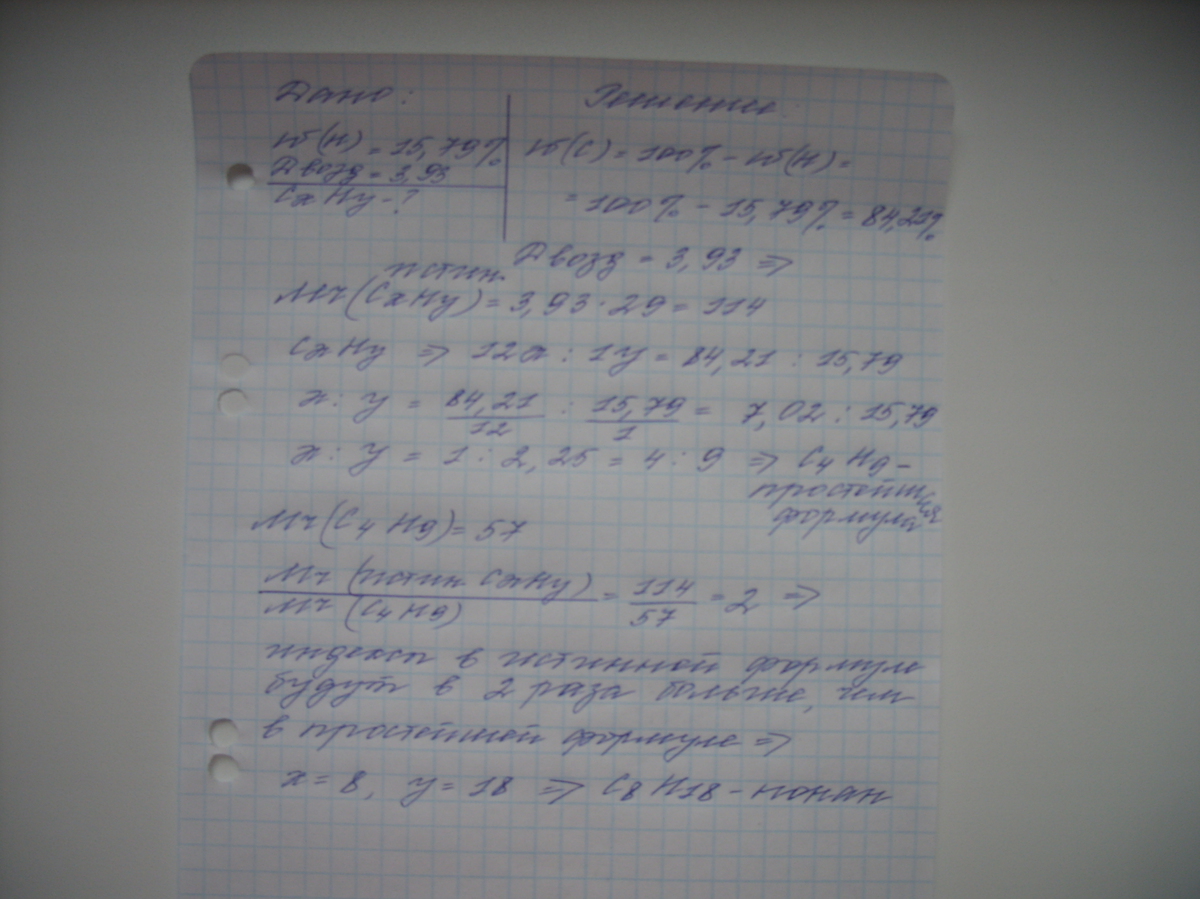 Дано:
Решение:
w(H) = 15,79%
Dвозд = 3,93
CxHy - ?
w(C) = 100% - w(H) =
= 100% - 15,79% = 84,21%
Dвозд = 3,93 =>
истин.
Mr(CxHy) = 3,93 · 29 = 114
CxHy => 12x : 1y = 84,21 : 15,79
x : y = 84,21/12 : 15,79/1 = 7,02 : 15,79
x : y = 1 : 2,25 = 4 : 9 => C4H9 -
простейшая
формула
Mr(C4H9) = 57
Mr(истин. CxHy)/Mr(C4H9) = 114/57 = 2 =>
индексы в истинной формуле
будут в 2 раза больше, чем
в простейшей формуле =>
x = 8, y = 18 => C8H18 - нонан